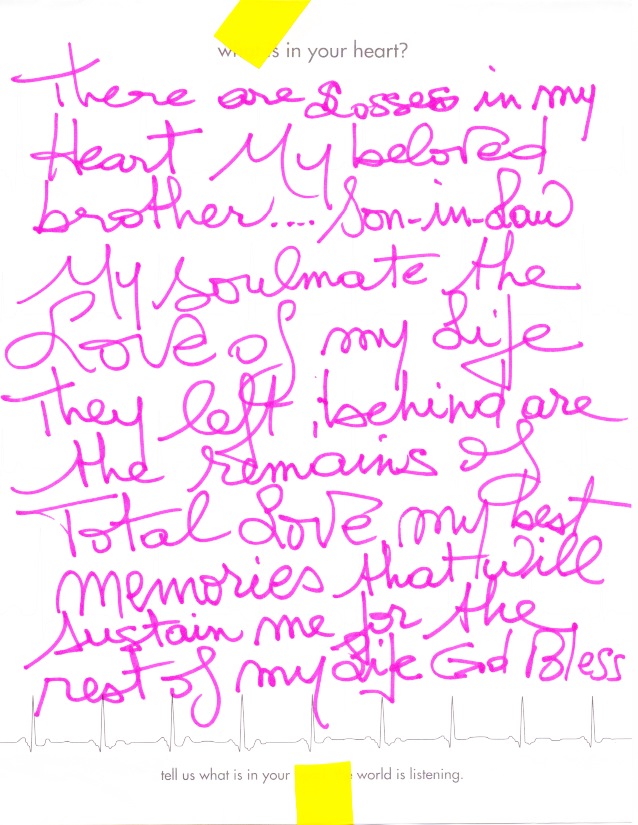 in your heart?
There are Losses in my
Heart My beloved
brother.... Son-in-Law
My soulmate the
Love of my Life
They left behind are
the remains of
Total Love my best
memories that will
sustain me for the
rest of my Life God Bless
tell us what is in your world is listening.